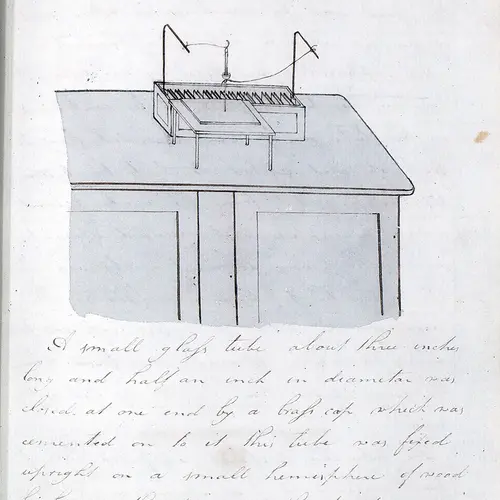 A small glass tube about three inches
long and half an inch in diameter was
closed at one end by a brass cap which was
cemented on to it this tube was fixed
upright on a small hemisphere of wood